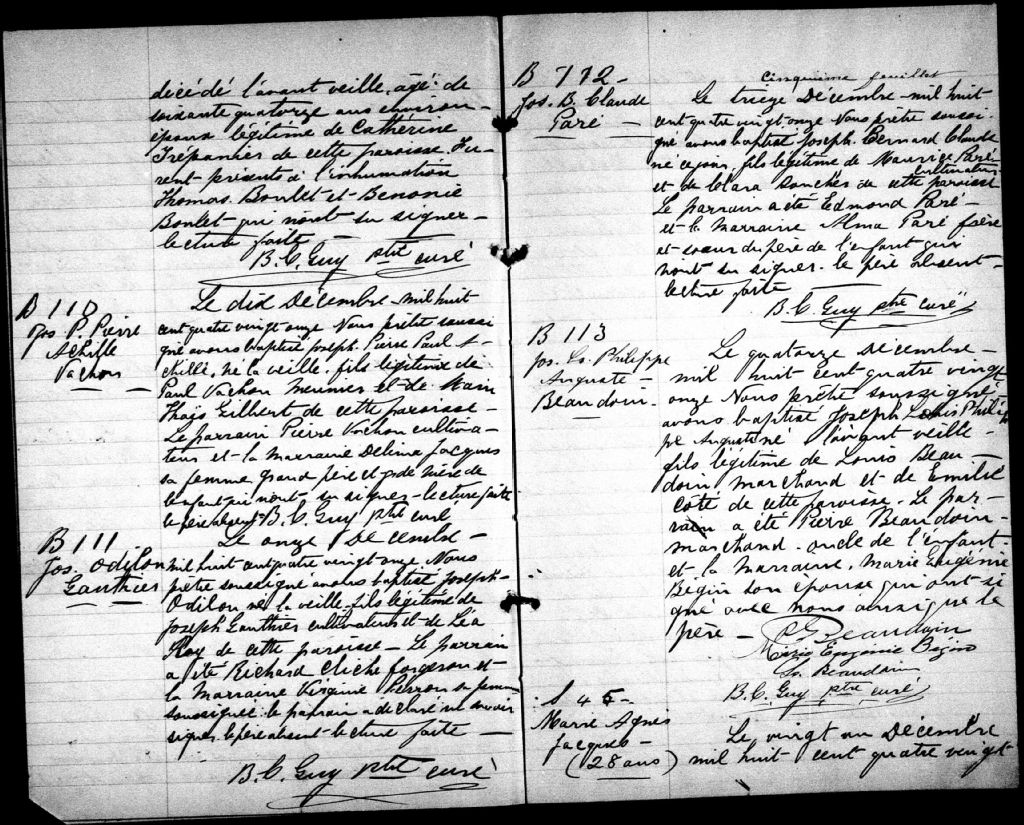 décédé l'avant veille, agé de
soixante quatorze ans environ
époux légitime de Cathérine
Trépanier de cette paroisse. Fu-
rent présents à l'inhumation
Thomas Boulet et Benonie
Boulet qui n'ont su signer -
lecture faite -
B. C. Guy ptre curé
B 110
Jos. P. Pierre
Achille
Vachon
Le dix Décembre mil huit
cent quatre vingt onze Nous prêtre soussi
gné avons baptisé Joseph Pierre Paul A-
chille, né la veille, fils légitime de
Paul Vachon meunier et de Marie
Gilbert de cette paroisse -
Le parrain Pierre Vachon cultiva-
teur et la marraine Delima Jacques
sa femme grand père et gde mère de
l'enfant qui n'ont su signer - lecture faite
le père absent B. C. Guy ptre curé
B 111
Jos. Odilon
Gauthier
Le onze Décembre -
mil huit cent quatre vingt onze Nous
prêtre soussigné avons baptisé Joseph -
Odilon né la veille fils légitime de
Joseph Gauthier cultivateur et de Léa
Roy de cette paroisse - Le parrain
a été Richard Cliche forgeron et
la marraine Virginie sa femme
soussignée le parrain a déclaré ne savoir
signer. le père absent lecture faite -
B. C. Guy ptre curé
Cinquième feuillet
B 112 -
Jos. B. Claude
Paré -
Le treize Décembre mil huit
cent quatre vingt onze Nous prêtre soussi-
gné avons baptisé Joseph Bernard Claude
né ce jour, fils légitime de Maurice Paré
cultivateur
et de Clara de cette paroisse
Le parrain a été Edmond Paré -
et la marraine Alma Paré frère
et soeur du père de l'enfant qui
n'ont su signer. le père absent -
lecture faite
B. C. Guy ptre curé
B 113
Jos. Ls. Philippe
Auguste -
Beaudoin -
Le quatorze Décembre -
mil huit cent quatre vingt
onze Nous prêtre soussigné
avons baptisé Joseph Louis Philip
pe Auguste né l'avant veille -
fils légitime de Louis Beau -
doin marchand et de Emilie
Coté de cette paroisse. Le par-
rain a été Pierre Beaudoin -
marchand - oncle de l'enfant -
et la marraine, Marie Eugénie
Bégin son épouse qui ont si
gné avec nous ainsi que le
père -
Beaudoin
Marie Eugénie Begin
Ls. Beaudoin
B. C. Guy ptre curé
S 45
Marie Agnès
Jacques -
(28 ans)
Le vingt un Décembre
mil huit cent quatre vingt